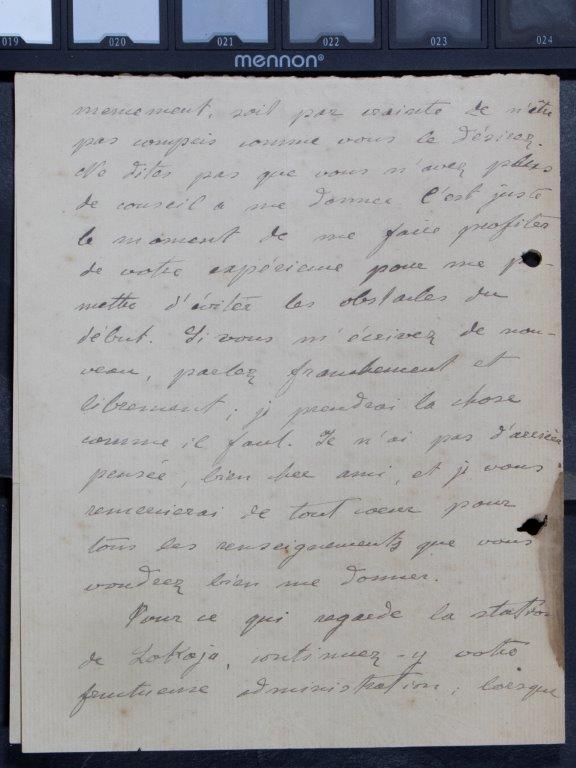 019 020 021 022 023 024
mennon®
memoment, soit par crainte de n'être
pas compris comme vous le désirez.
Ne dites pas que vous n'avez plus
de conseil à me donner. C'est juste
le moment de me faire profiter
de votre expérience pour me p-
mettre d'éviter les obstacles du
début. Si vous m'écrivez de nou-
veau, parlez franchement et
librement; je prendrai la chose
comme il faut. Je n'ai pas d'arrière
pensée, bien cher ami, et je vous
remercierai de tout coeur pour
tous les renseignements que vous
voudrez bien me donner.
Pour ce qui regarde la station
de Lokoja, continuez-y votre
fructueuse administration; lorsque